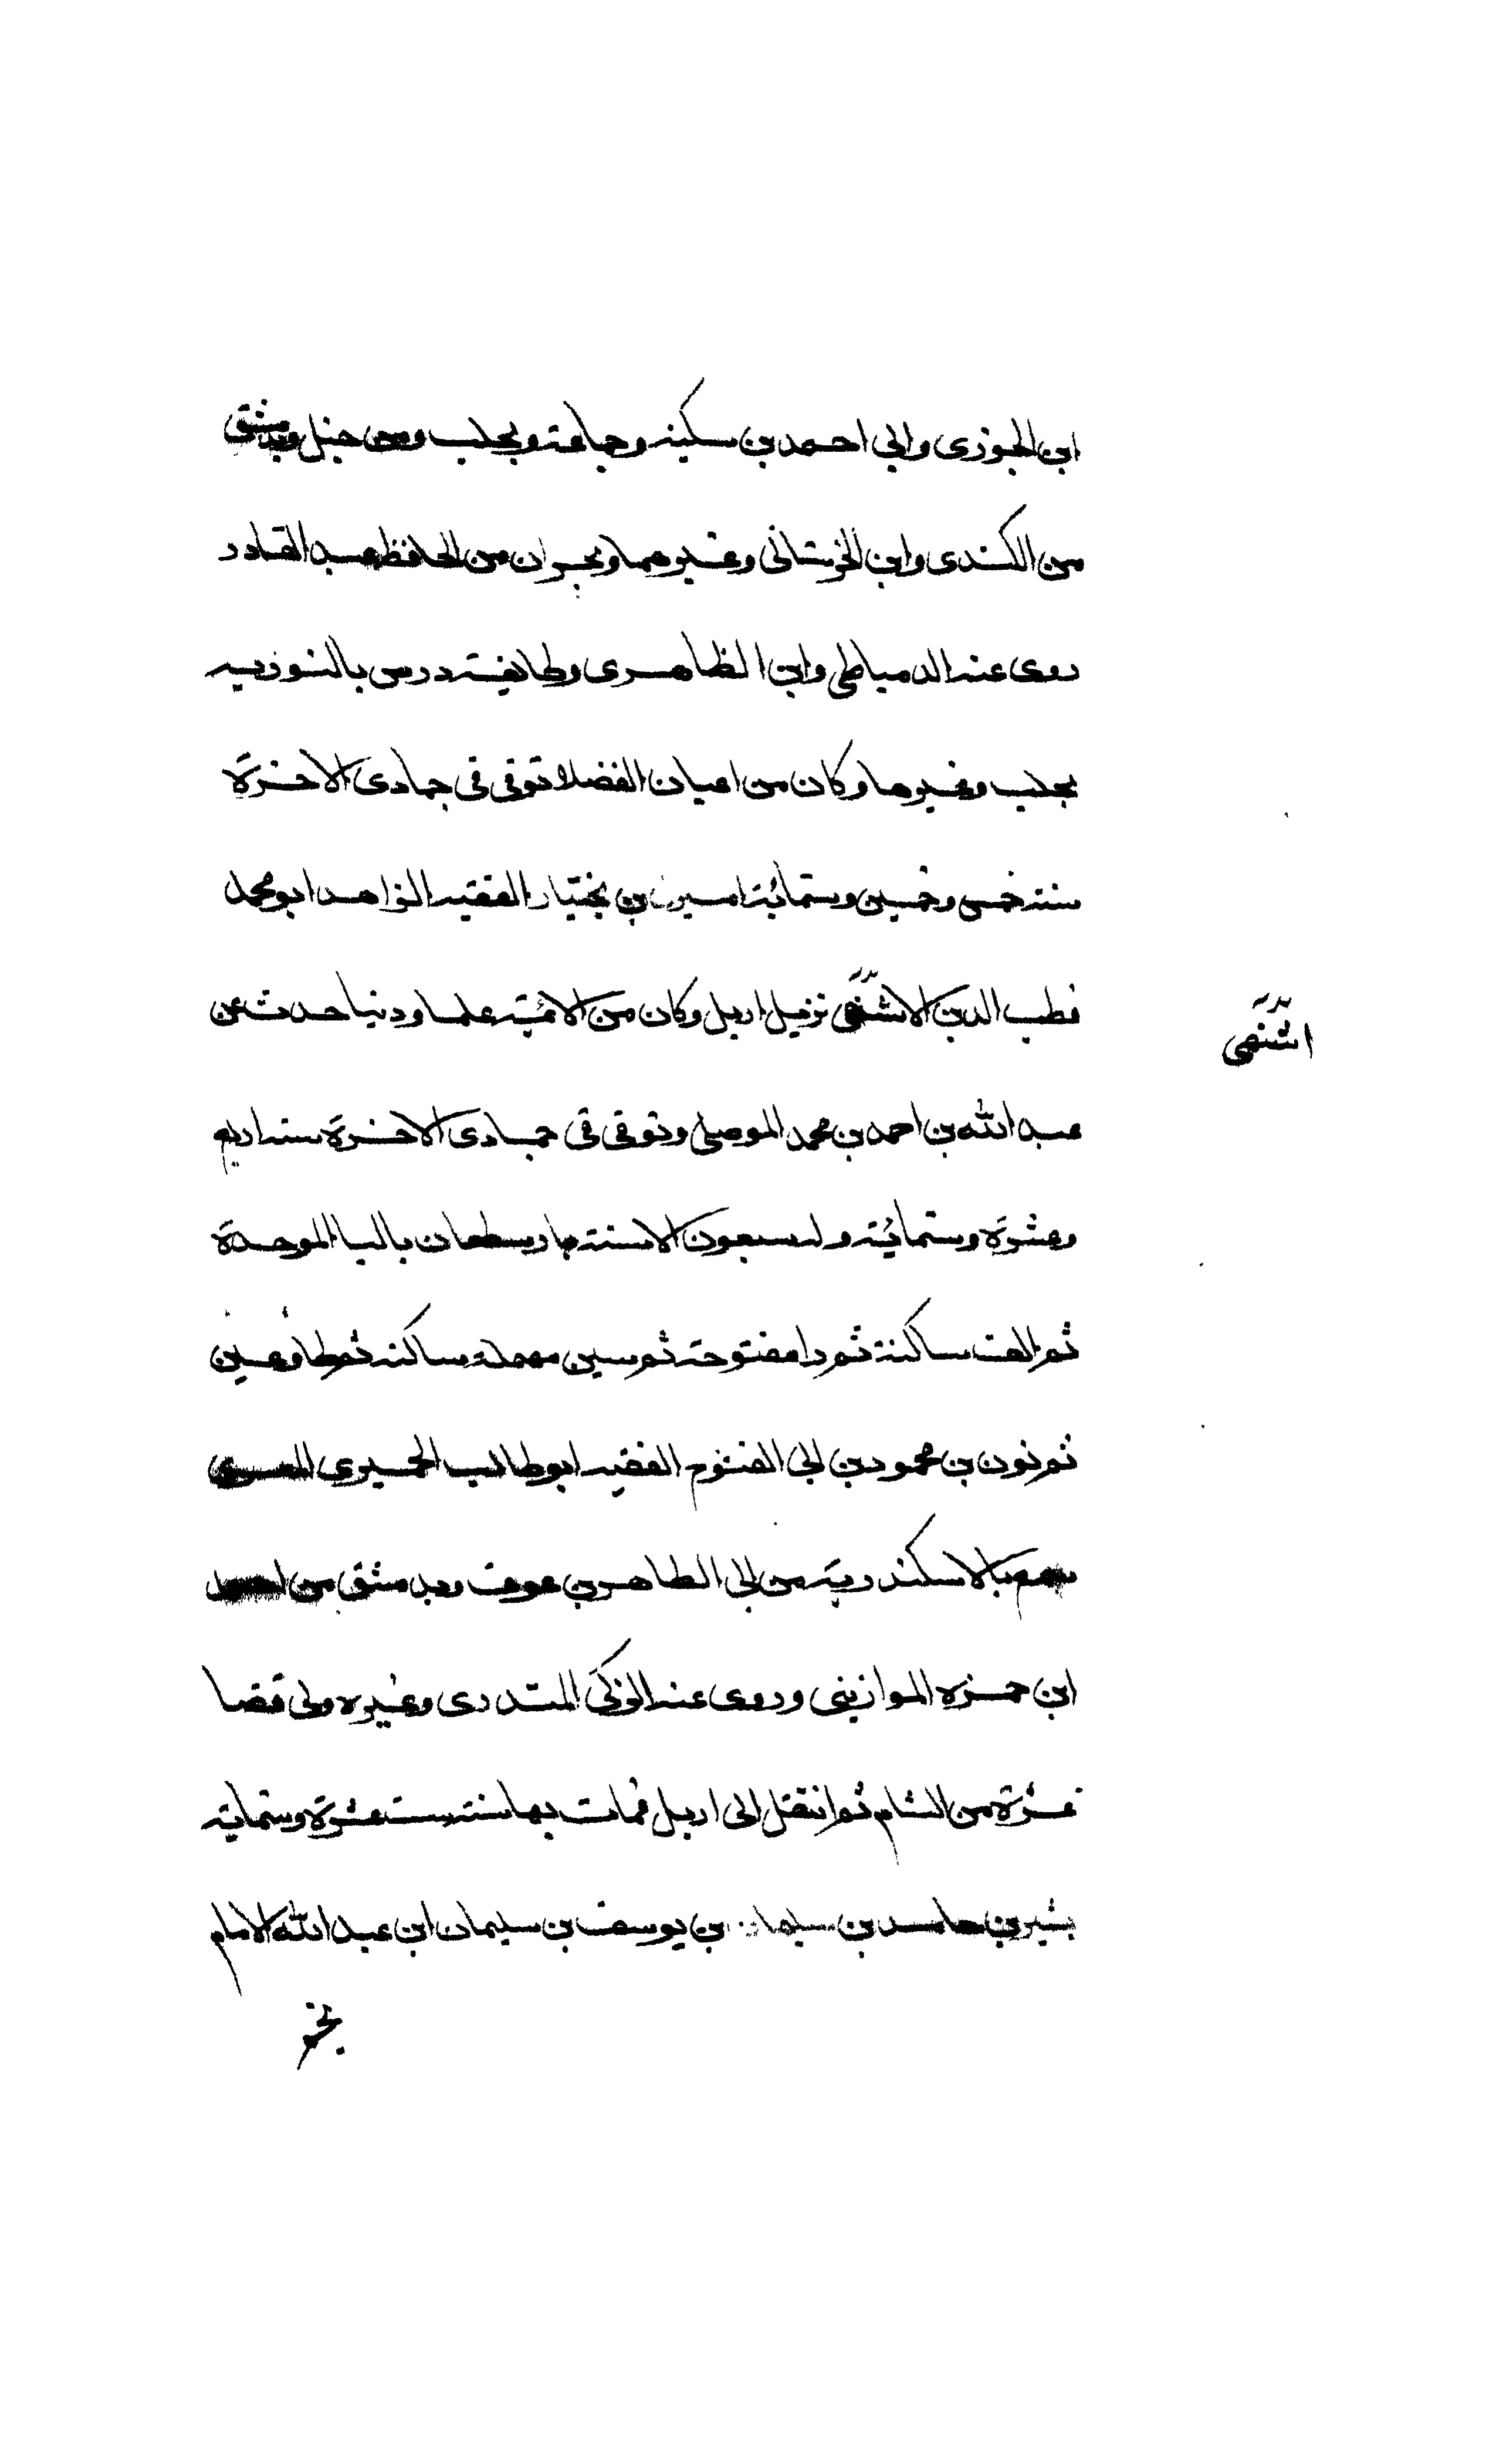 ابن الجوزى وابى احمد بن سكينه وجماعة وبحلب ومن حنبل وبدمشق
من الكندى وابن الخرستانى وغيرهما وبحران من الحافظ عبد القادر
روى عنه الدمياطى وابن الظاهرى وطايفة درس بالنوريه
بحلب وغيرها وكان من اعيان الفضلا توفى فى جمادى الاخرة
سنة خمس وخمسين وستمائة اميرى بن بختيار الفقيه الزاهد ابو محمد
قطب الدين الاشنهى نزيل اربل وكان من الائمة علما ودنيا حدث عن
اشنهى
عبد الله بن احمد بن محمد الموصلى وتوفى فى جمادى الاخرة سنه اربع
وعشرة وستمائة وله سبعون الا سنة بارسطعان بالبا الموحدة
ثم الف ساكنة ثم را مفتوحة ثم سين مهملة ساكنه ثم طا وعين
ثم نون بن محمود بن ابى الفتوح الفقيه ابو طالب الحميرى
سمع بالاسكندرية من ابى الطاهر بن عوف وبدمشق من احمد
ابن حمزه الموازينى وروى عنه الزكى المتدرى وغيره ولى قضا
غزة من الشام ثم انتقل الى اربل فمات بها سنة ست عشرة وستماية
بشير بن حامد بن سليمان بن يوسف بن سليمان ابن عبد الله الامام